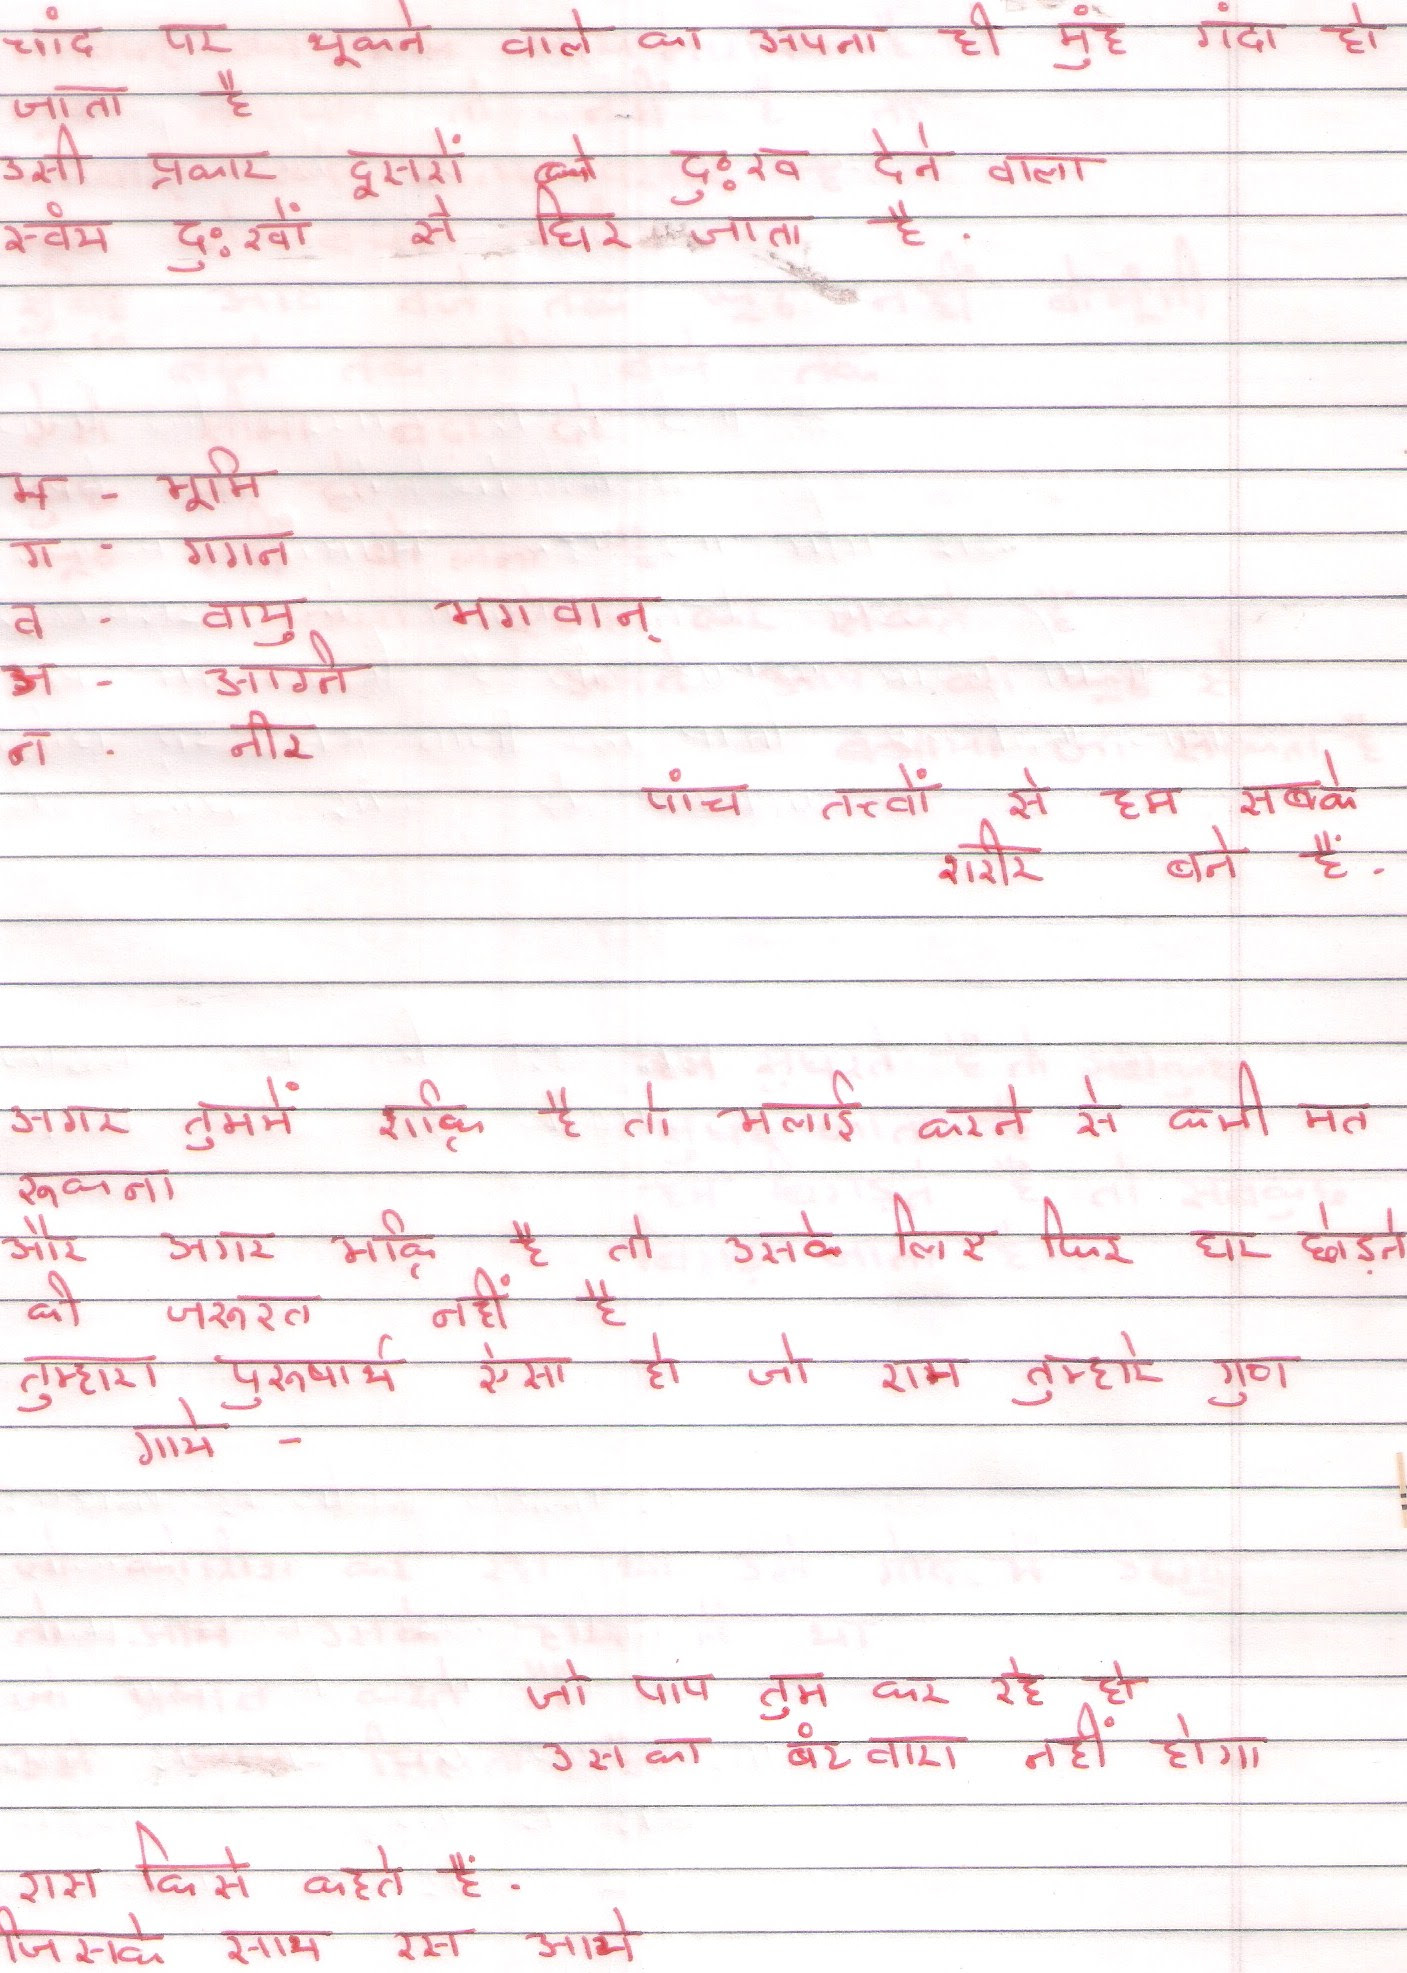 चांद पर थूकने वाले का अपना ही मुंह गंदा हो
जाता है
उसी प्रकार दूसरों को दुःख देने वाला
स्वंय दुःखों से घिर जाता है .
भ - भूमि
ग - गगन
व - वायु भगवान्
अ - अग्नि
न - नीर
पांच तत्वों से हम सबके
शरीर बने हैं .
अगर तुममें शक्ति है तो भलाई करने से कभी मत
रूकना
और अगर भक्ति है तो उसके लिए फिर घर छोड़ने
की जरूरत नहीं है
तुम्हारा पुरूषार्थ ऐसा हो जो राम तुम्हारे गुण
गाये -
जो पाप तुम कर रहे हो
उसका बंटवारा नहीं होगा
रास किसे कहते हैं .
जिसके साथ रस आये